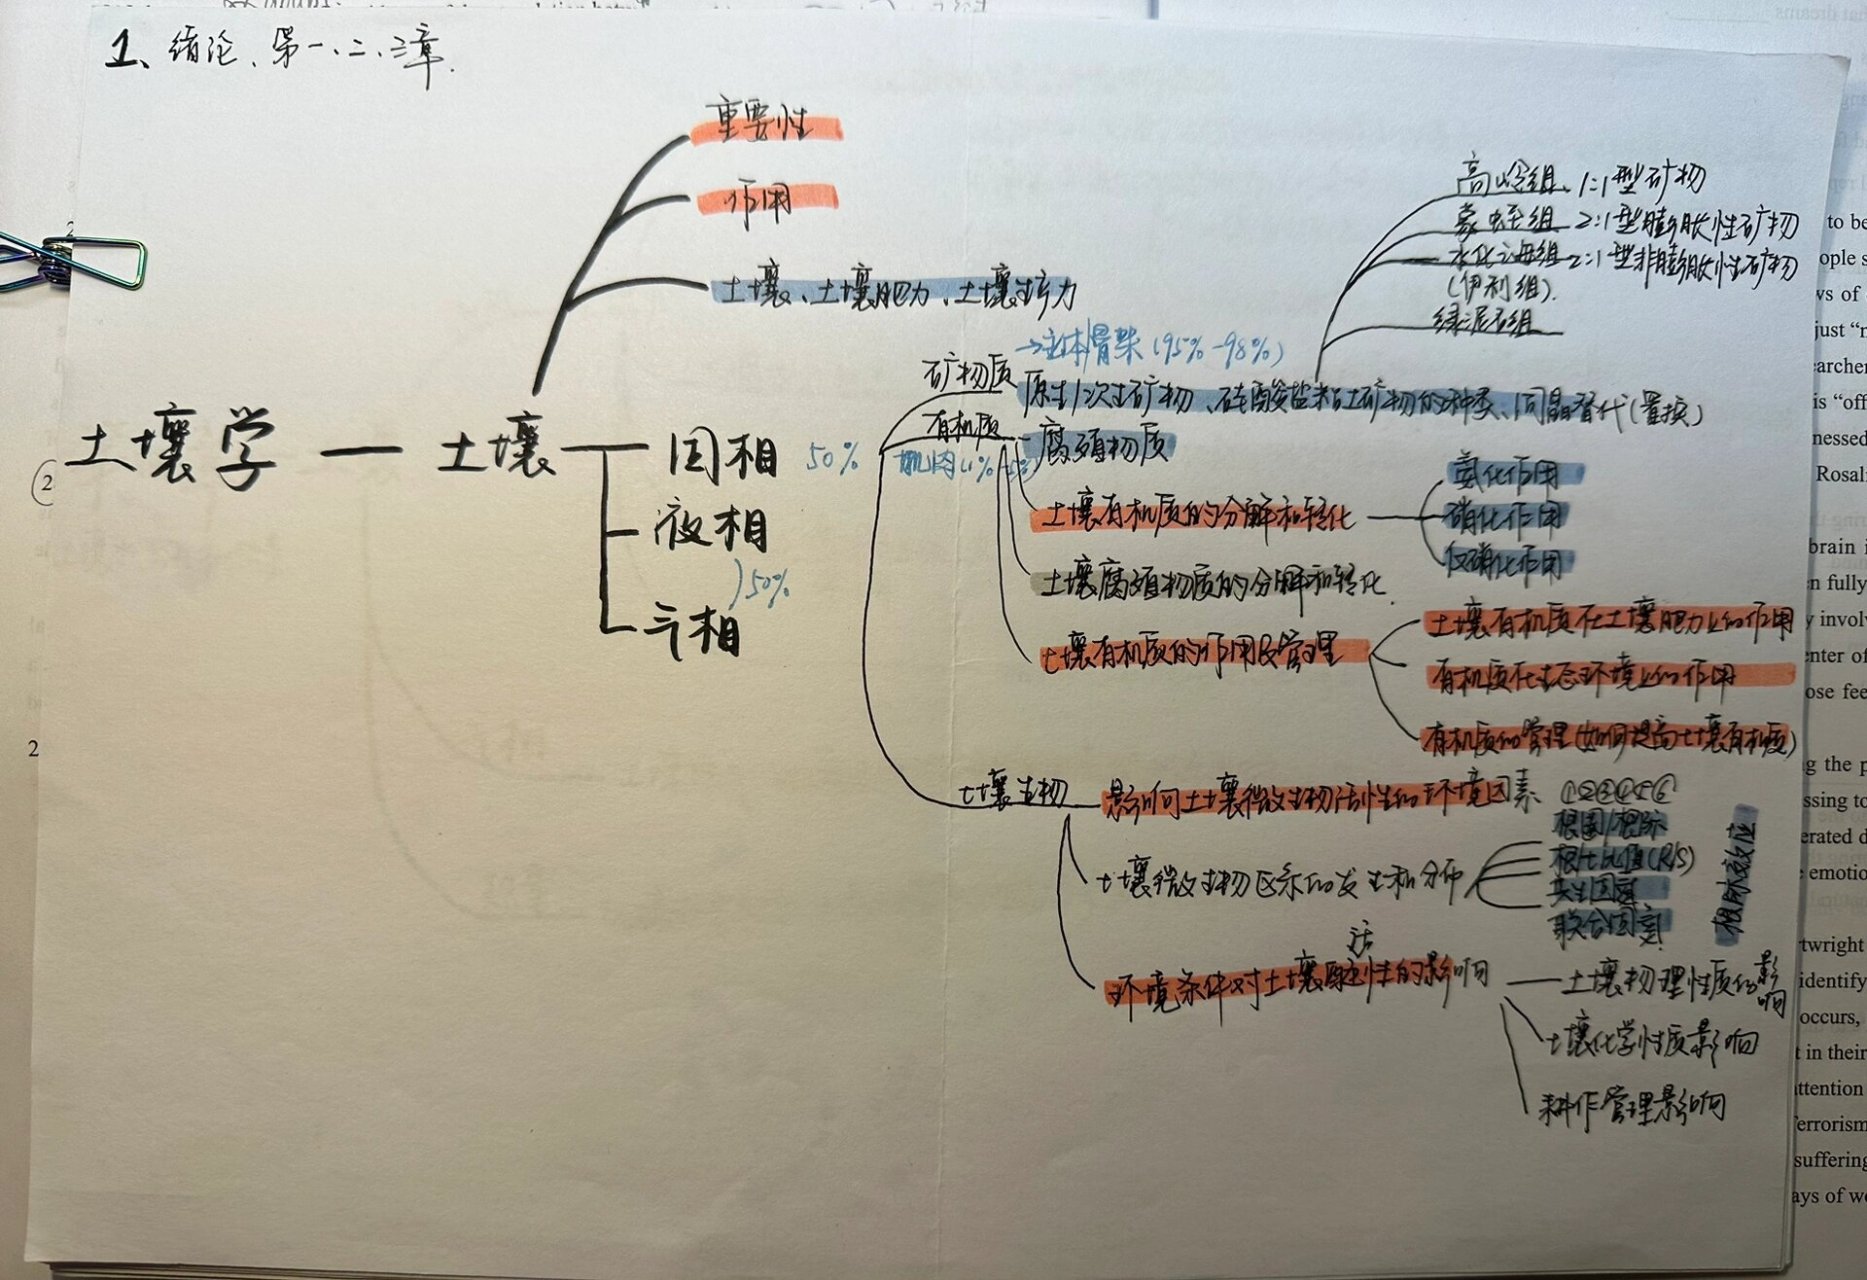 1、绪论、第一、二、三章.
重要性
作用
土壤、土壤肥力、土壤生产力
高岭组、1:1型矿物
蒙蛭组 2:1型膨胀性矿物
水化云母组 2:1型非膨胀性矿物
(伊利组).
绿泥石组
土壤学 — 土壤
固相 50%
液相
)50%
气相
矿物质
→主体骨架(95%-98%)
原生/次生矿物、硅酸盐粘土矿物的种类、同晶替代(置换)
有机质
肌肉(1%-5%)
腐殖物质
土壤有机质的分解和转化
氨化作用
硝化作用
反硝化作用
土壤腐殖物质的分解和转化.
土壤有机质的作用及管理
土壤有机质在土壤肥力上的作用
有机质在生态环境上的作用
有机质的管理(如何提高土壤有机质)
土壤生物
影响土壤微生物活性的环境因素 ①②③④⑤⑥
土壤微生物区系的发生和分布
根圈/根际
根土比值(R/S)
共生固氮
联合固氮
根际效应
环境条件对土壤酶活性的影响
土壤物理性质的影响
土壤化学性质影响
耕作管理影响
②
2
to be
ople s
ws of
just "r
archer
is "off
nessed
Rosal
brain i
n fully
y invol
enter of
ose fee
g the p
ssing to
erated d
emotio
twright
identify
occurs,
t in their
attention
errorism
suffering
ays of wo